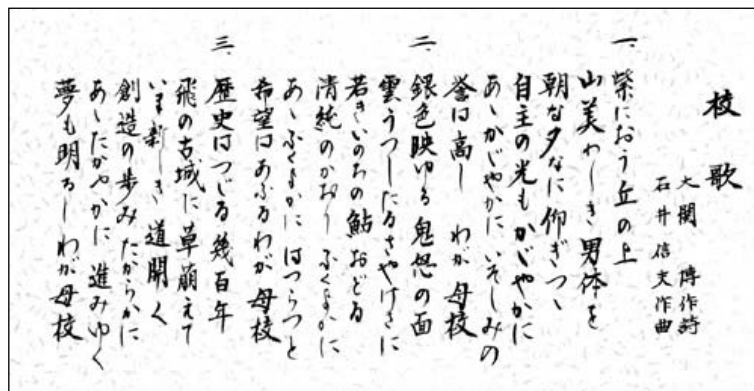 校歌
大関 博作詩
石井信夫作曲
一、紫におう丘の上
山美わしき男体を
朝な夕なに仰ぎつゝ
自主の光もかゞやかに
あゝかゞやかに いそしみの
誉は高し わが母校
二、銀色映ゆる鬼怒の面
雲うつしたるさやけさに
若きいのちの鮎おどる
清純のかおり ふくよかに
あゝふくよかに はつらつと
希望はあふるわが母校
三、歴史はつゞる幾百年
飛の古城に草萌えて
いま新しき 道開く
創造の歩みたからかに
あゝたからかに 進みゆく
夢も明るしわが母校